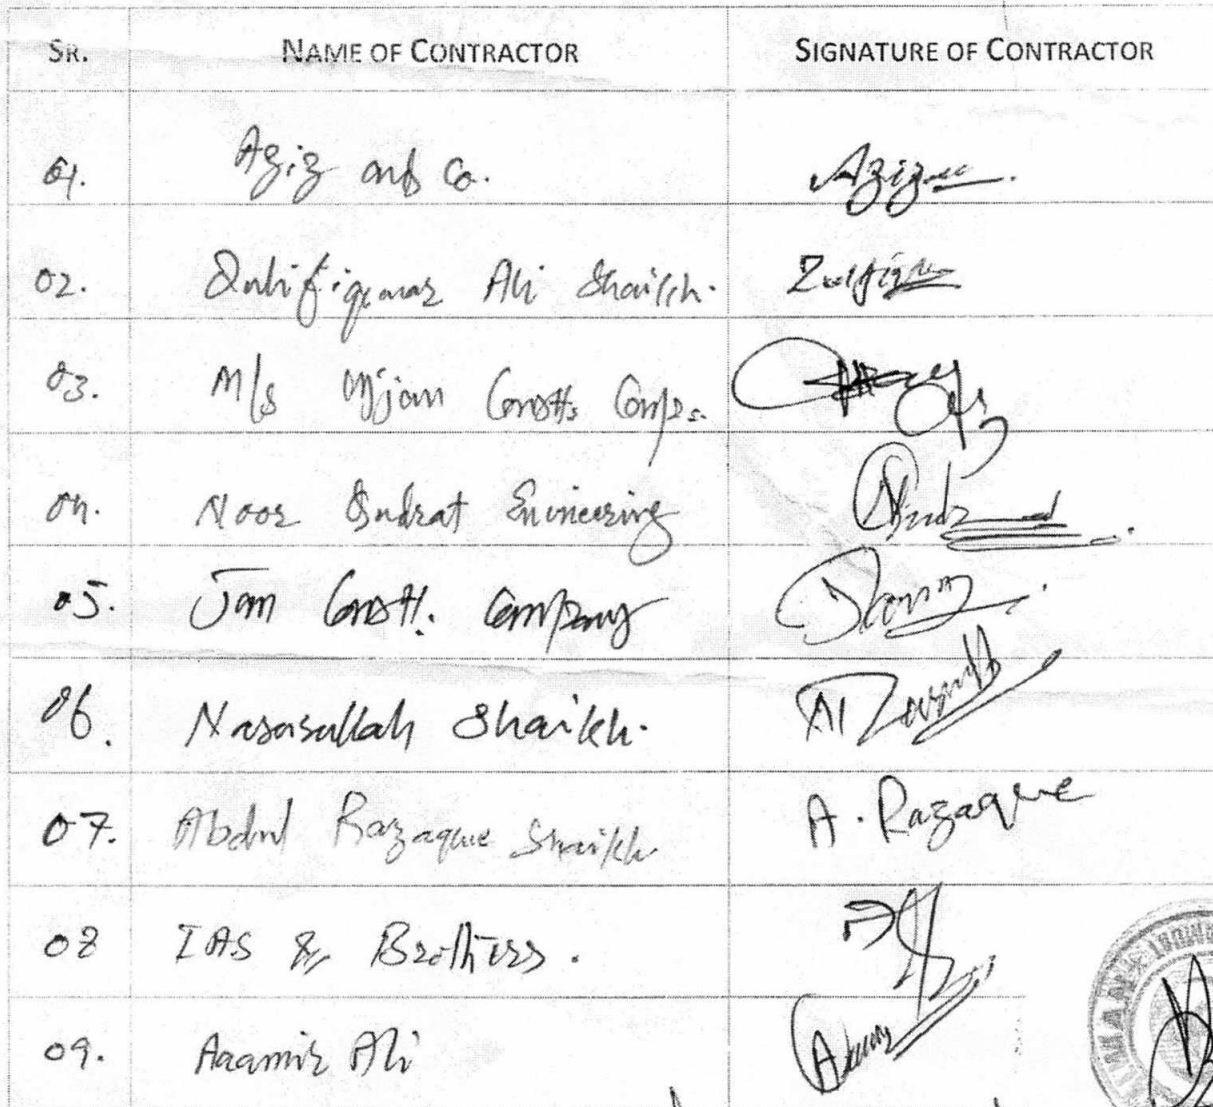 SR. NAME OF CONTRACTOR SIGNATURE OF CONTRACTOR
01. Aziz and Co. Aziz
02. Zulifiqamar Ali Shaikh. Zulfiqar
03. M/s Constt: Comp:
04. Noor Qudrat Enineering
05. Jan Constt. Company
06. Nasarullah Shaikh.
07. Abdul Razaque Shaikh A. Razaque
08 IAS & Brothers.
09. Aaamir Ali